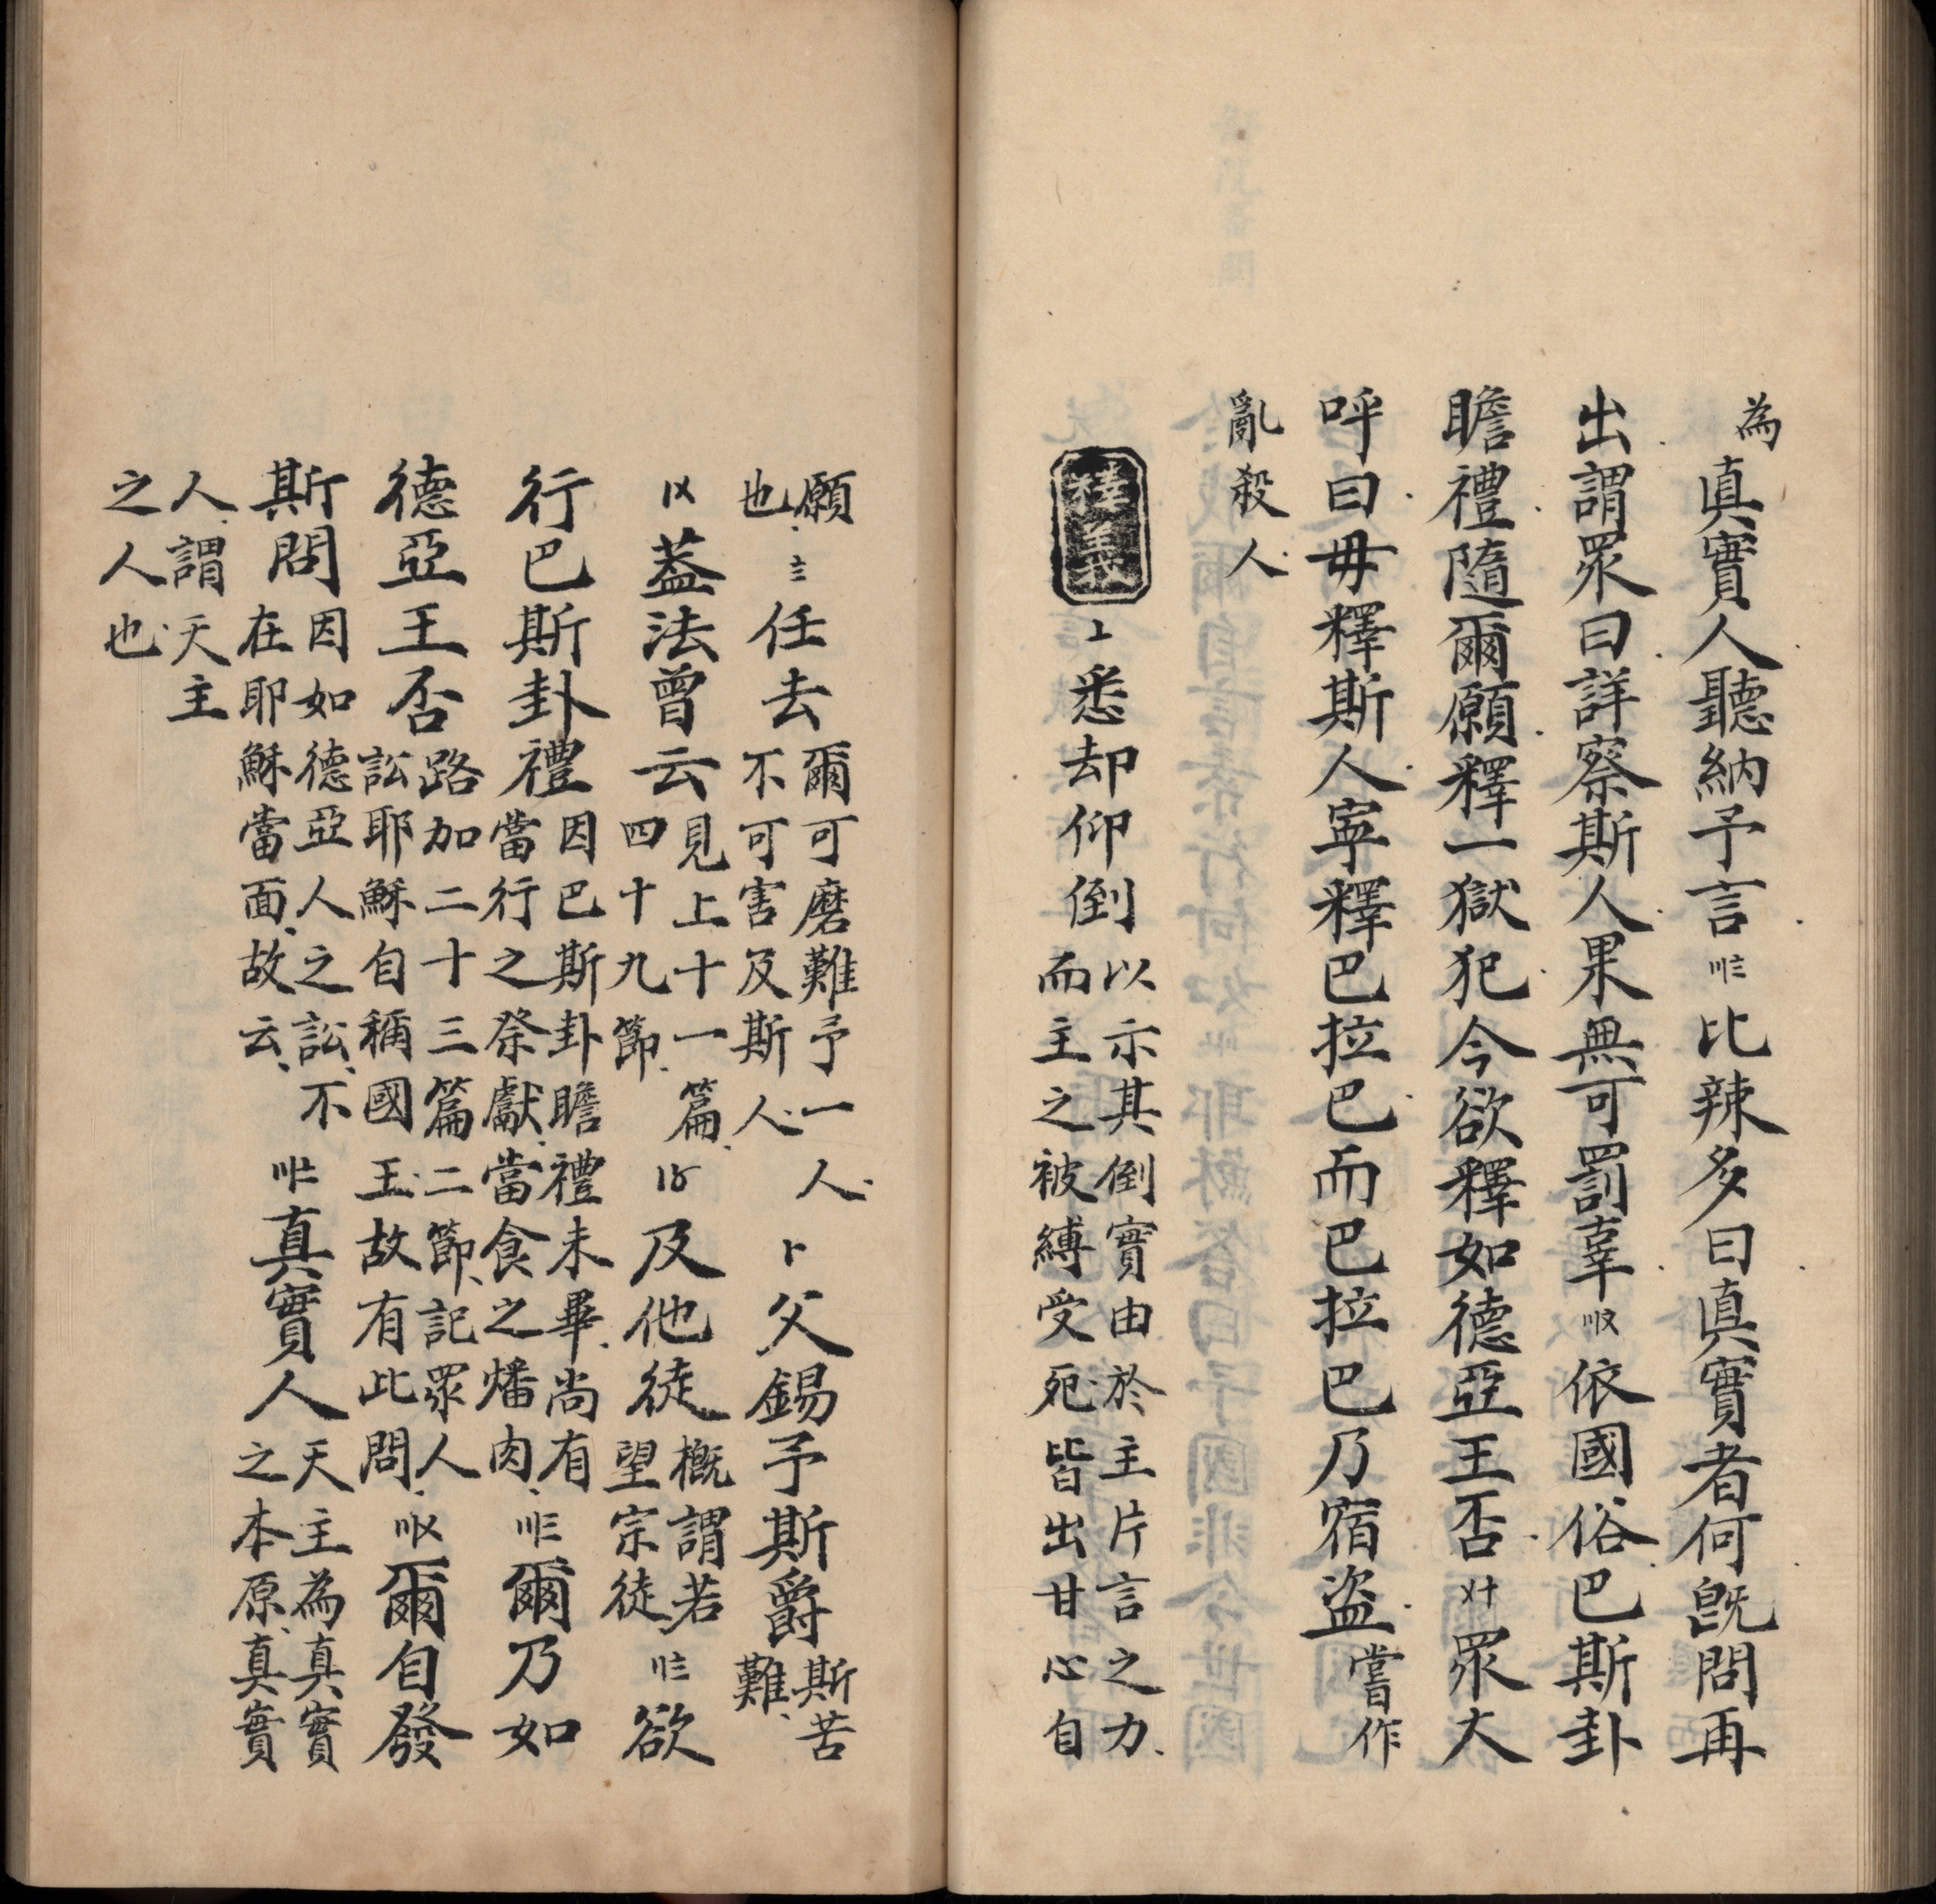 為真實人聽納予言〣〨比辣多曰真實者何旣問再
出謂眾曰詳察斯人果無可罰辜〣〩依國俗巴斯卦
瞻禮隨爾願釋一獄犯今欲釋如德亞王否〤十眾大
呼曰毋釋斯人寧釋巴拉巴而巴拉巴乃宿盜嘗作
亂殺人
釋義〦悉却仰倒以示其倒實由於主片言之力而主之被縛受死皆出甘心自
願也〨任去爾可磨難予一人不可害及斯人〡一父錫予斯爵斯苦難
〡〤葢法曾云見上十一篇四十九節〡〥及他徒概謂若望宗徒〢〨欲
行巴斯卦禮因巴斯卦瞻禮未畢尚有當行之祭獻當食之燔肉〣三爾乃如
德亞王否路加二十三篇二節記眾人訟耶穌自稱國王故有此問〣〤爾自發
斯問因如德亞人之訟不在耶穌當面故云〣〧真實人天主為真實之本原真實
人謂天主之人也